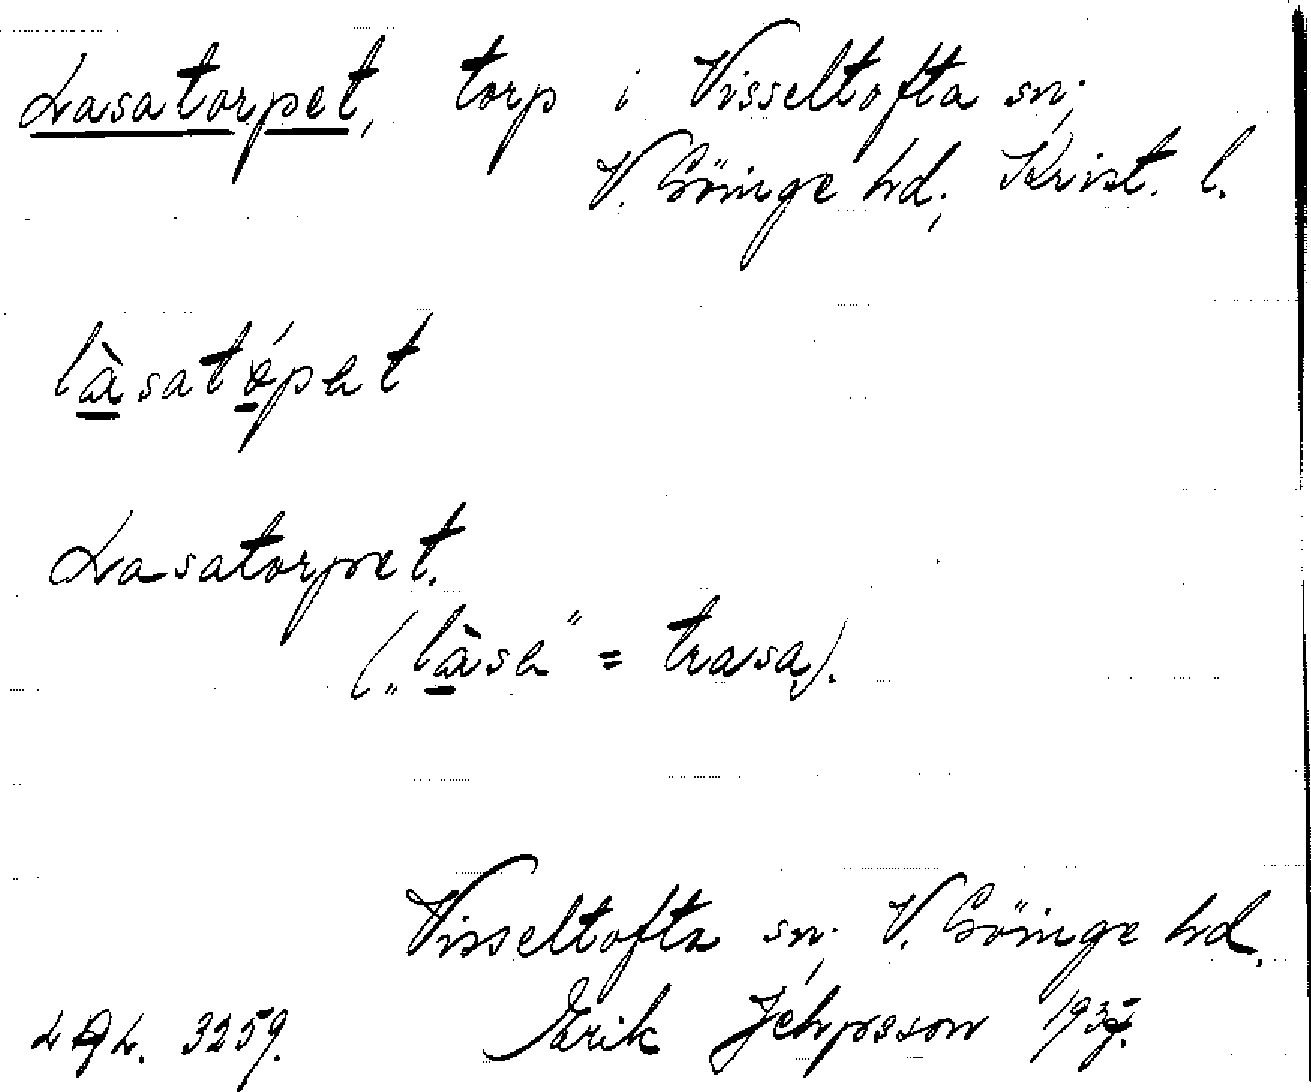 Lasatorpet, torp i Visseltofta sn;
V. Göinge hd; Krist. l.
làsatǫ́pət
Lasatorpet.
(„làsə” = trasa).
Visseltofta sn; V. Göinge hd.
Erik Jeppsson
3259.